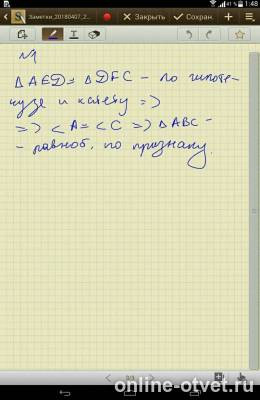 1:48
Заметки_20180407_2... Закрыть Сохран.
N1
△AED = △DFC - по гипоте-
нузе и катету =>
=> <A = <C => △ABC -
- равноб. по признаку.
online-otvet.ru